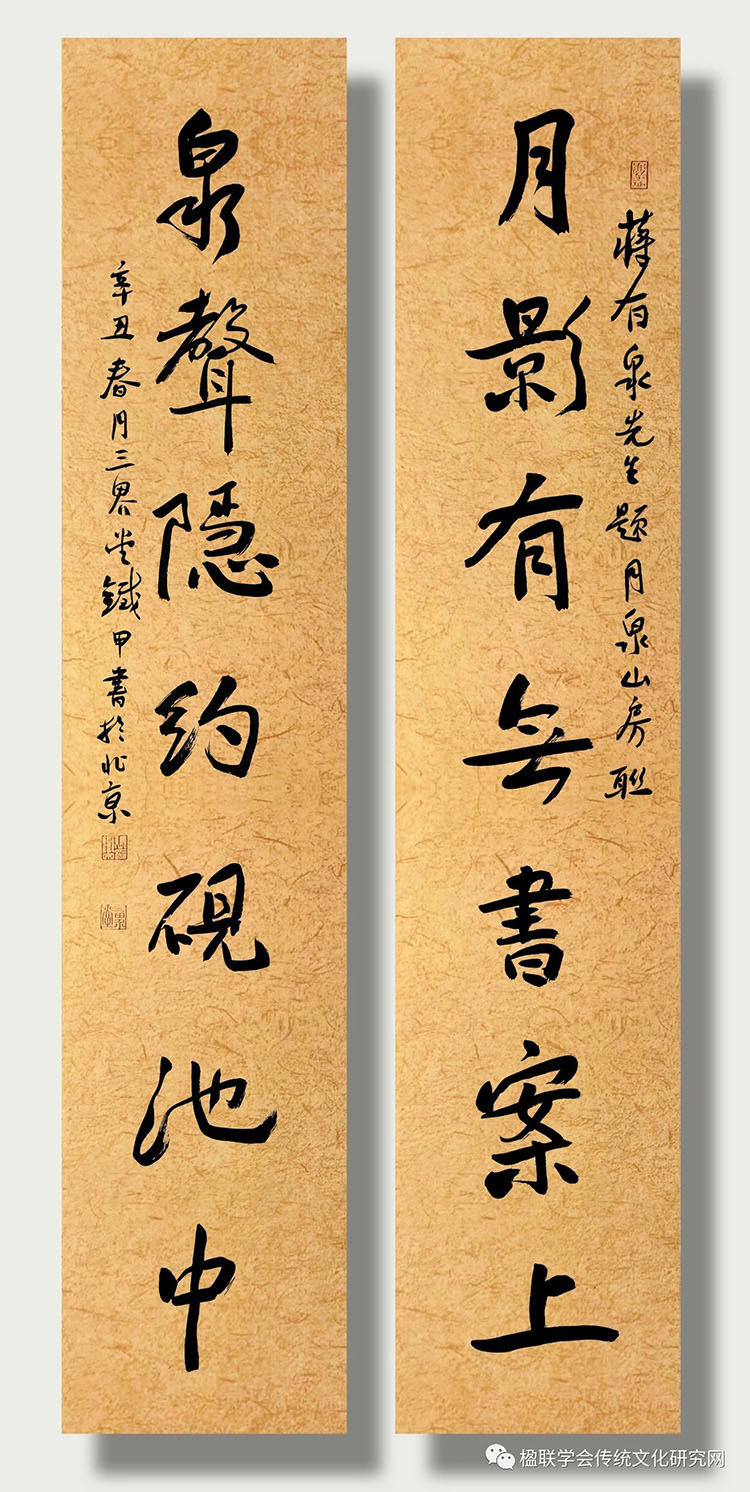 蔣有泉先生題月泉山房聯
月影有無書案上
泉聲隱約硯池中
辛丑春月三界堂鐵甲書於北京
楹联学会传统文化研究网